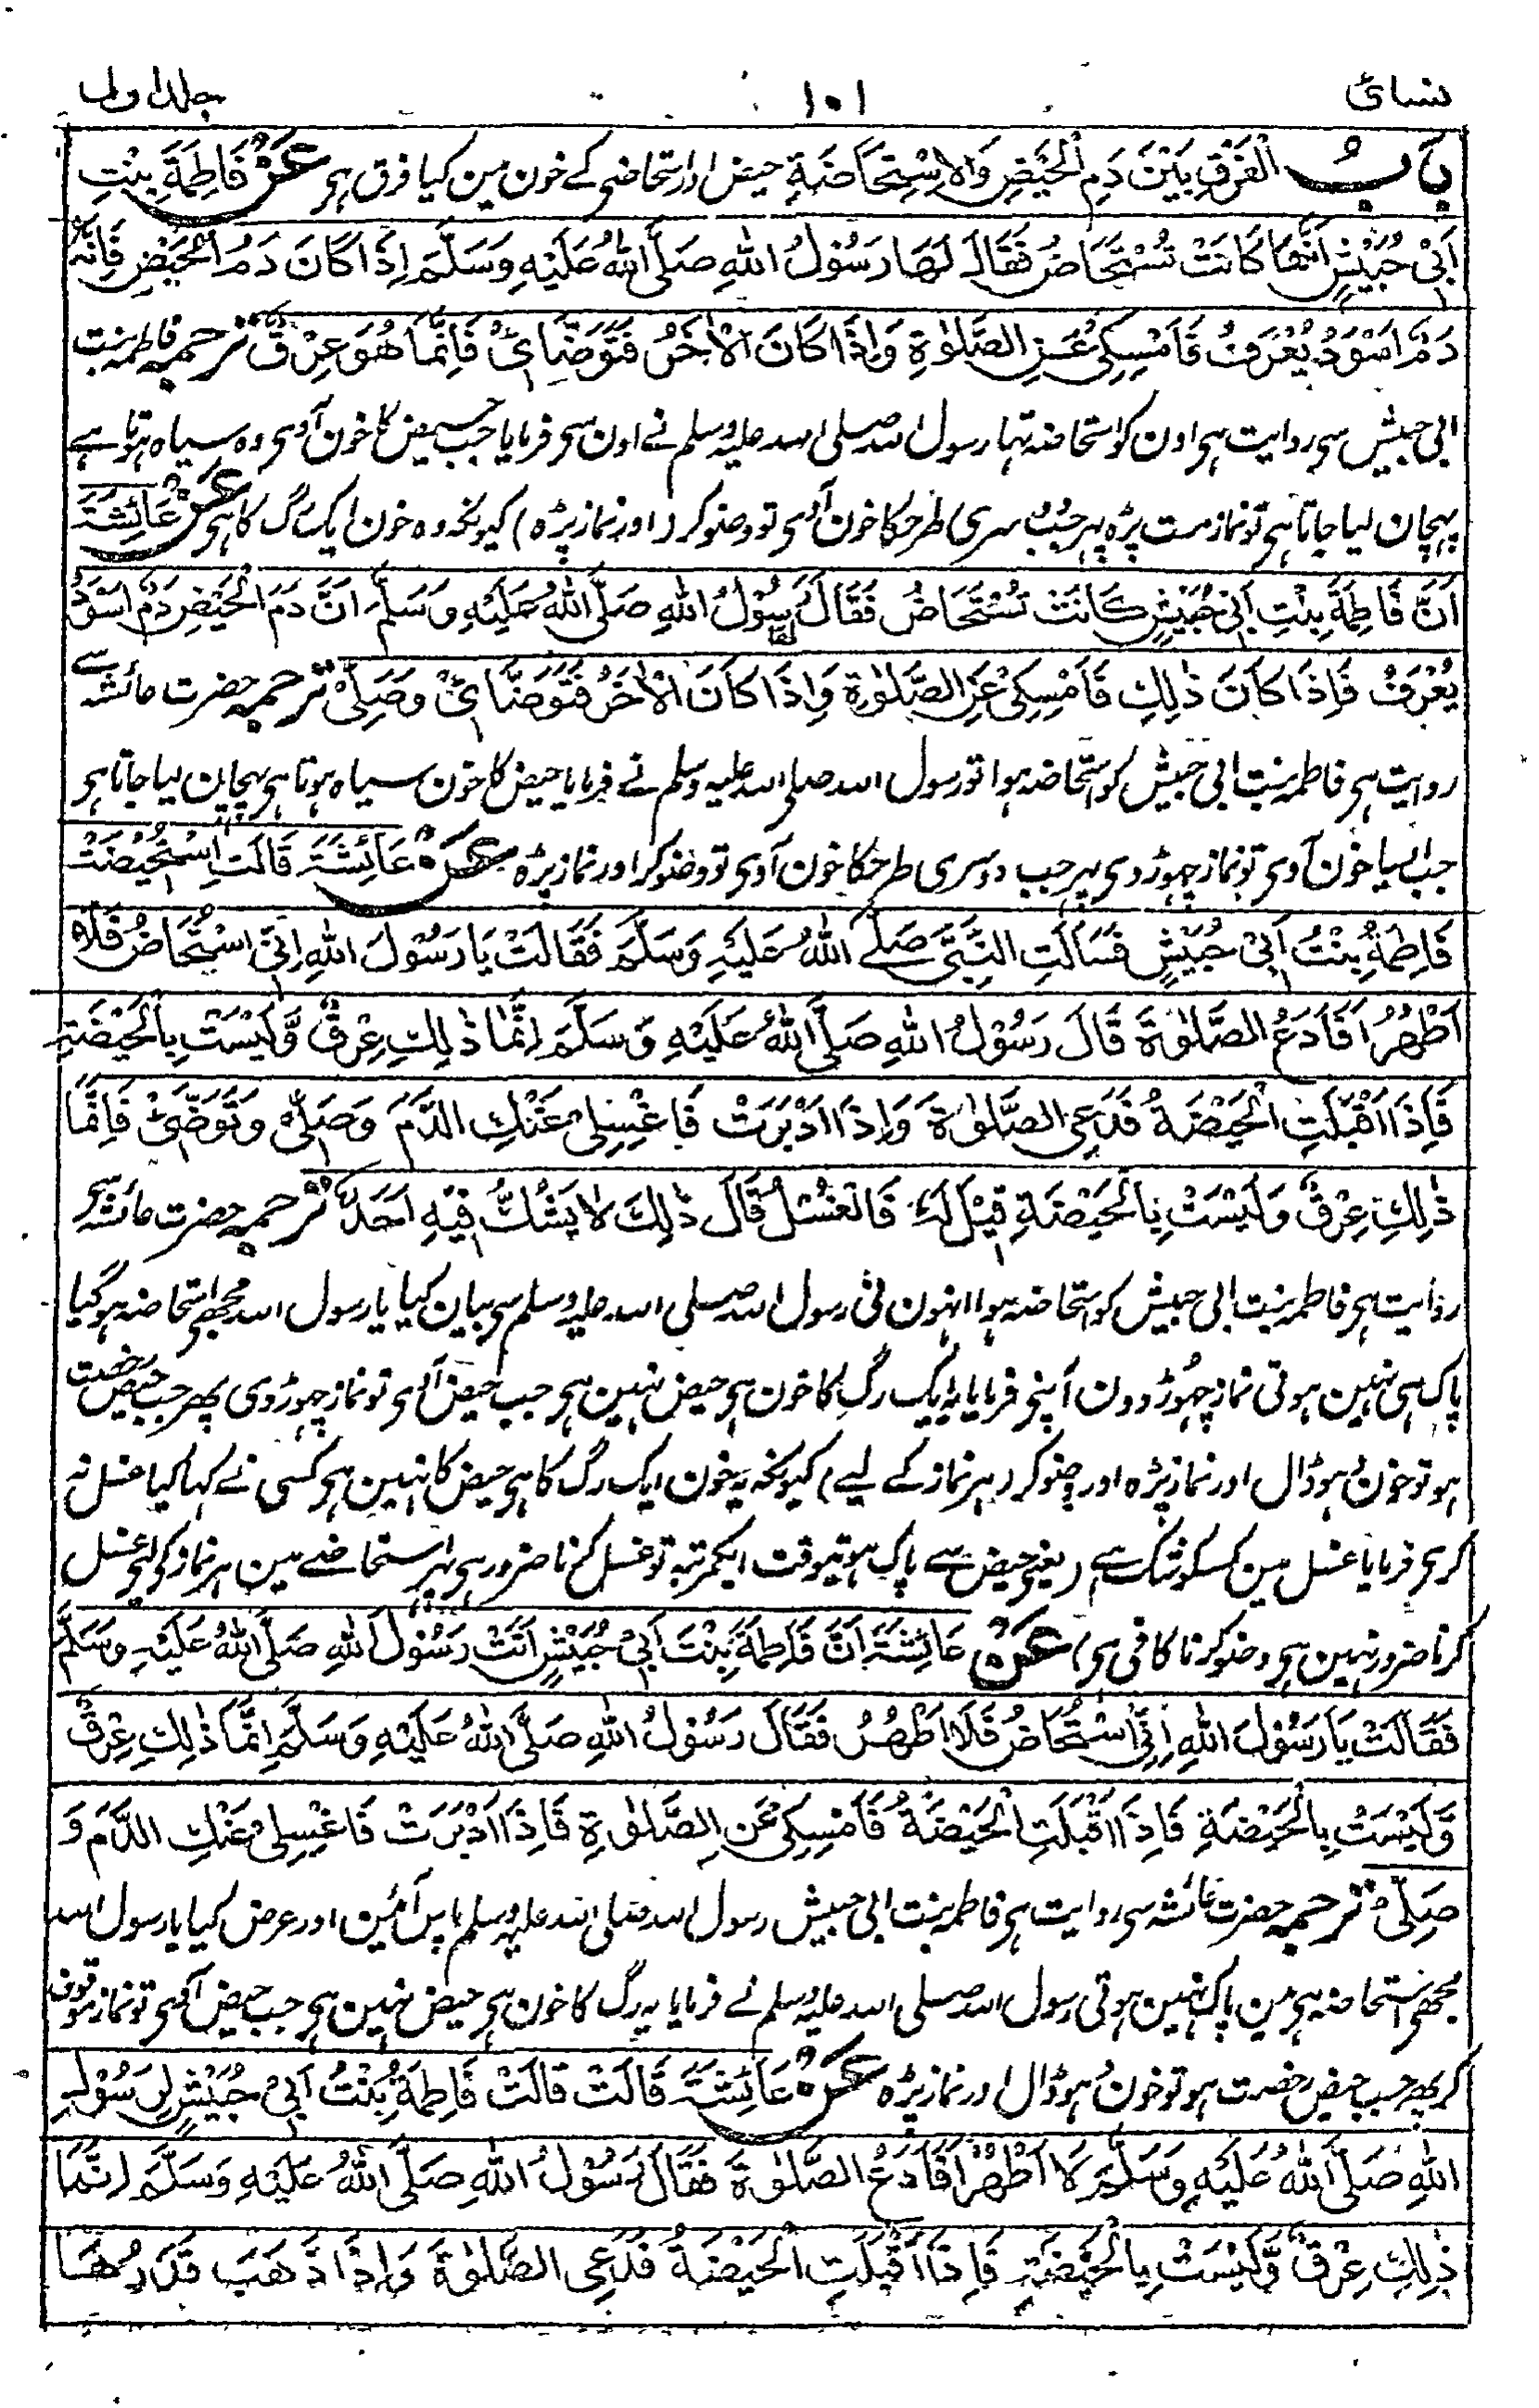 نسائی ١٠١ جلد اول
بَابُ الْفَرْقِ بَيْنَ دَمِ الْحَيْضِ وَالْاِسْتِحَاضَةِ حیض اور استحاضے کے خون مین کیا فرق ہے عَنْ فَاطِمَةَ بِنْتِ
اَبِيْ حُبَيْشٍ اَنَّهَا كَانَتْ تُسْتَحَاضُ فَقَالَ لَهَا رَسُوْلُ اللهِ صَلَّى اللهُ عَلَيْهِ وَسَلَّمَ اِذَا كَانَ دَمُ الْحَيْضِ فَاِنَّهُ
دَمٌ اَسْوَدُ يُعْرَفُ فَاَمْسِكِيْ عَنِ الصَّلٰوةِ وَاِذَا كَانَ الْاٰخَرُ فَتَوَضَّائِيْ فَاِنَّمَا هُوَ عِرْقٌ ترجمہ فاطمہ بنت
ابی حبیش سے روایت ہے اون کو استحاضہ تہا رسول اللہ صلی اللہ علیہ وسلم نے اون سے فرمایا جب حیض کا خون آوے وہ سیاہ ہوتا ہے
پہچان لیا جاتا ہے تو نماز مت پڑہ پہر جب دوسری طرحکا خون آوے تو وضو کر (اور نماز پڑہ) کیونکہ وہ خون ایک رگ کا ہے عَنْ عَائِشَةَ
اَنَّ فَاطِمَةَ بِنْتِ اَبِيْ حُبَيْشٍ كَانَتْ تُسْتَحَاضُ فَقَالَ لَهَا رَسُوْلُ اللهِ صَلَّى اللهُ عَلَيْهِ وَسَلَّمَ اِنَّ دَمَ الْحَيْضِ دَمٌ اَسْوَدُ
يُعْرَفُ فَاِذَا كَانَ ذٰلِكِ فَاَمْسِكِيْ عَنِ الصَّلٰوةِ وَاِذَا كَانَ الْاٰخَرُ فَتَوَضَّائِيْ وَصَلِّيْ ترجمہ حضرت عائشہ سے
روایت ہے فاطمہ بنت ابی حبیش کو استحاضہ ہوا تو رسول اللہ صلی اللہ علیہ وسلم نے فرمایا حیض کا خون سیاہ ہوتا ہے پہچان لیا جاتا ہے
جب ایسا خون آوے تو نماز چہوڑ دے پہر جب دوسری طرحکا خون آوے تو وضو کر اور نماز پڑہ عَنْ عَائِشَةَ قَالَتِ اسْتُحِيْضَتْ
فَاطِمَةُ بِنْتُ اَبِيْ حُبَيْشٍ فَسَاَلَتِ النَّبِيَّ صَلَّے اللهُ عَلَيْهِ وَسَلَّمَ فَقَالَتْ يَا رَسُوْلَ اللهِ اِنِّيْ اُسْتَحَاضُ فَلَا
اَطْهُرُ اَفَاَدَعُ الصَّلٰوةَ قَالَ رَسُوْلُ اللهِ صَلَّى اللهُ عَلَيْهِ وَسَلَّمَ اِنَّمَا ذٰلِكِ عِرْقٌ وَّلَيْسَتْ بِالْحَيْضَةِ
فَاِذَا اَقْبَلَتِ الْحَيْضَةُ فَدَعِي الصَّلٰوةَ وَاِذَا اَدْبَرَتْ فَاغْسِلِيْ عَنْكِ الدَّمَ وَصَلِّيْ وَتَوَضَّئِيْ فَاِنَّمَا
ذٰلِكِ عِرْقٌ وَلَيْسَتْ بِالْحَيْضَةِ قِيْلَ لَهُ فَالْغُسْلُ قَالَ ذٰلِكَ لَا يَشُكُّ فِيْهِ اَحَدٌ ترجمہ حضرت عائشہ سے
روایت ہے فاطمہ بنت ابی حبیش کو استحاضہ ہوا انہون نے رسول اللہ صلی اللہ علیہ وسلم سے بیان کیا یا رسول اللہ مجھے استحاضہ ہو گیا
پاک ہی نہین ہوتی نماز چہوڑ دون آپنے فرمایا یہ ایک رگ کا خون ہے حیض نہین ہے جب حیض آوے تو نماز چہوڑ دے پھر جب حیض رخصت
ہو تو خون دہو ڈال اور نماز پڑہ اور وضو کر (ہر نماز کے لیے) کیونکہ یہ خون ایک رگ کا ہے حیض کا نہین ہے کسی نے کہا کیا غسل نہ
کرے فرمایا غسل مین کسکو شک ہے (یعنے حیض سے پاک ہوتیوقت ایکمرتبہ تو غسل کرنا ضرور ہے پہر استحاضے مین ہر نماز کو لیے غسل
کرنا ضرور نہین ہے وضو کرنا کافی ہے) عَنْ عَائِشَةَ اَنَّ فَاطِمَةَ بِنْتَ اَبِيْ حُبَيْشٍ اَتَتْ رَسُوْلَ اللهِ صَلَّى اللهُ عَلَيْهِ وَسَلَّمَ
فَقَالَتْ يَا رَسُوْلَ اللهِ اِنِّيْ اُسْتَحَاضُ فَلَا اَطْهُرُ فَقَالَ رَسُوْلُ اللهِ صَلَّى اللهُ عَلَيْهِ وَسَلَّمَ اِنَّمَا ذٰلِكِ عِرْقٌ
وَّلَيْسَتْ بِالْحَيْضَةِ فَاِذَا اَقْبَلَتِ الْحَيْضَةُ فَاَمْسِكِيْ عَنِ الصَّلٰوةِ فَاِذَا اَدْبَرَتْ فَاغْسِلِيْ عَنْكِ الدَّمَ وَ
صَلِّيْ ترجمہ حضرت عائشہ سے روایت ہے فاطمہ بنت ابی حبیش رسول اللہ صلی اللہ علیہ وسلم پاس آئین اور عرض کیا یا رسول اللہ
مجھے استحاضہ ہے مین پاک نہین ہوتی رسول اللہ صلی اللہ علیہ وسلم نے فرمایا یہ رگ کا خون ہے حیض نہین ہے جب حیض آوے تو نماز موقوف
کر پھر جب حیض رخصت ہو تو خون دہو ڈال اور نماز پڑہ عَنْ عَائِشَةَ قَالَتْ قَالَتْ فَاطِمَةُ بِنْتُ اَبِيْ حُبَيْشٍ لِرَسُوْلِ
اللهِ صَلَّى اللهُ عَلَيْهِ وَسَلَّمَ لَا اَطْهُرُ اَفَاَدَعُ الصَّلٰوةَ فَقَالَ رَسُوْلُ اللهِ صَلَّى اللهُ عَلَيْهِ وَسَلَّمَ اِنَّمَا
ذٰلِكِ عِرْقٌ وَّلَيْسَتْ بِالْحَيْضَةِ فَاِذَا اَقْبَلَتِ الْحَيْضَةُ فَدَعِي الصَّلٰوةَ وَاِذَا ذَهَبَ قَدْرُهَا